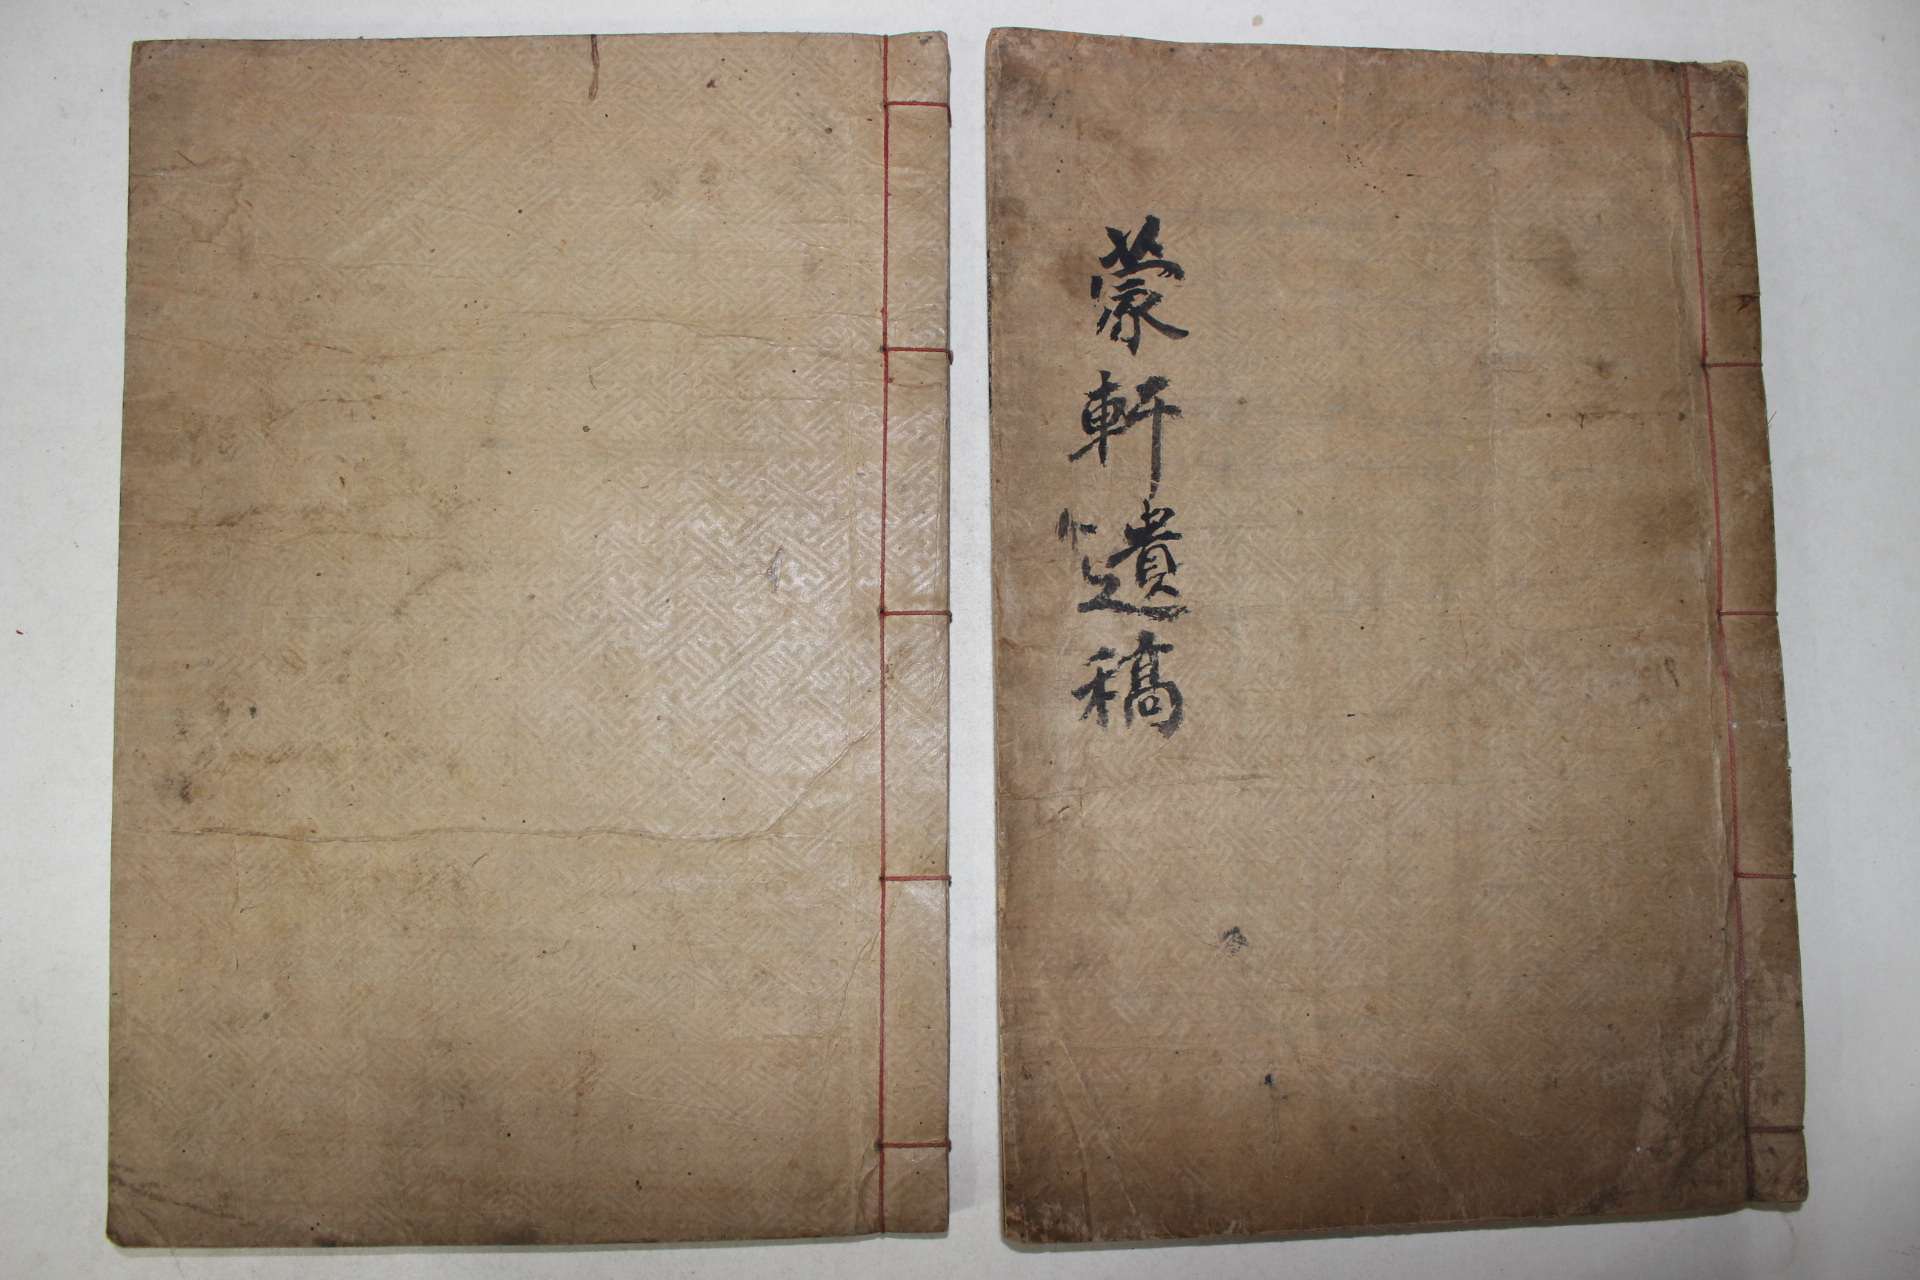 蒙軒遺稿